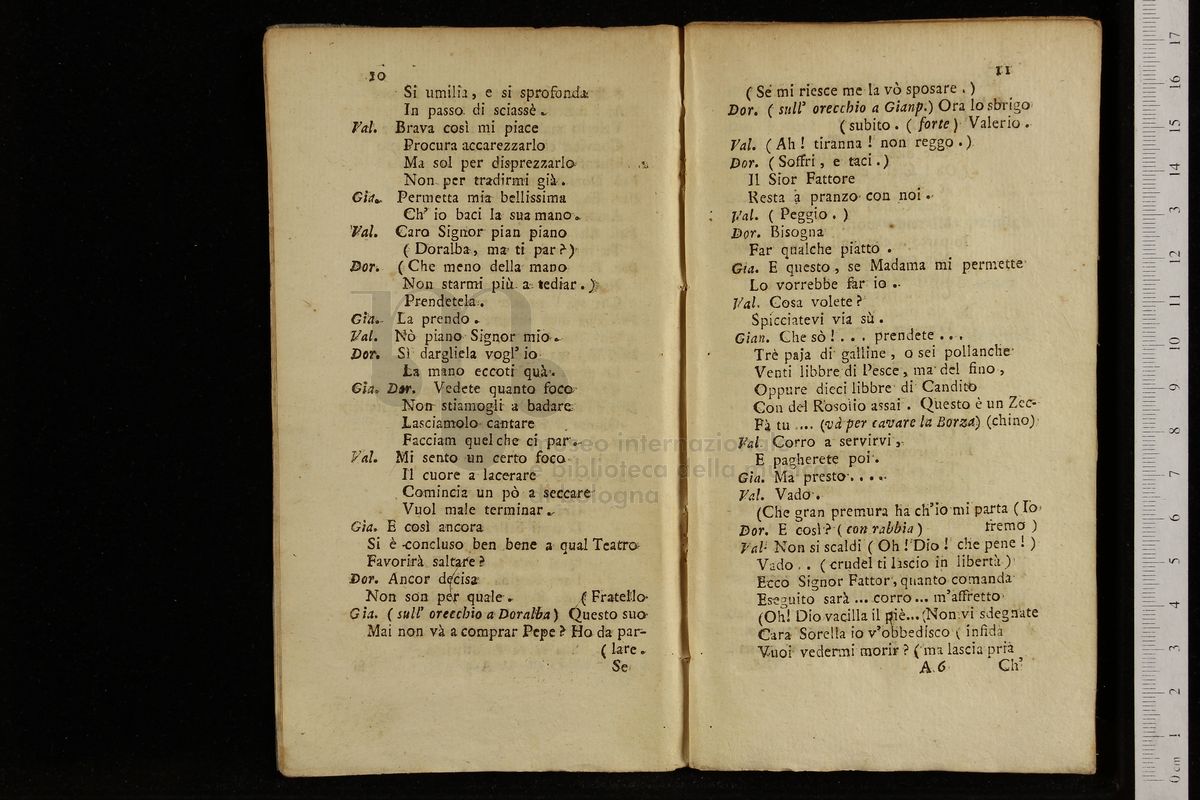 10
Si umilia, e si sprofonda
In passo di sciassè.
Val. Brava così mi piace
Procura accarezzarlo
Ma sol per disprezzarlo
Non per tradirmi già.
Gia. Permetta mia bellissima
Ch' io baci la sua mano.
Val. Caro Signor pian piano
( Doralba, ma ti par?)
Dor. (Che meno della mano
Non starmi più a tediar.)
Prendetela.
Gia. La prendo.
Val. Nò piano Signor mio.
Dor. Sì dargliela vogl' io
La mano eccoti quà.
Gia. Dor. Vedete quanto foco
Non stiamogli a badare
Lasciamolo cantare
Facciam quel che ci par.
Val. Mi sento un certo foco
Il cuore a lacerare
Comincia un pò a seccare
Vuol male terminar.
Gia. E così ancora
Si è concluso ben bene a qual Teatro
Favorirà saltare?
Dor. Ancor decisa
Non son per quale. ( Fratello
Gia. ( sull' orecchio a Doralba) Questo suo
Mai non và a comprar Pepe? Ho da par-
( lare.
Se
11
( Se mi riesce me la vò sposare. )
Dor. ( sull' orecchio a Gianp.) Ora lo sbrigo
( subito. ( forte) Valerio.
Val. ( Ah! tiranna! non reggo.)
Dor. ( Soffri, e taci.)
Il Sior Fattore
Resta a pranzo con noi.
Val. ( Peggio. )
Dor. Bisogna
Far qualche piatto.
Gia. E questo, se Madama mi permette
Lo vorrebbe far io.
Val. Cosa volete?
Spicciatevi via sù.
Gian. Che sò!... prendete...
Trè paja di galline, o sei pollanche
Venti libbre di Pesce, ma del fino,
Oppure dieci libbre di Candito
Con del Rosolio assai. Questo è un Zec-
Fà tu .... (và per cavare la Borza) (chino)
Val. Corro a servirvi,
E pagherete poi.
Gia. Ma presto....
Val. Vado.
(Che gran premura ha ch'io mi parta (Io
Dor. E così? ( con rabbia) fremo )
Val. Non si scaldi ( Oh! Dio! che pene! )
Vado.. ( crudel ti lascio in libertà )
Ecco Signor Fattor, quanto comanda
Eseguito sarà... corro... m'affretto
(Oh! Dio vacilla il piè...(Non vi sdegnate
Cara Sorella io v'obbedisco ( infida
Vuoi vedermi morir? ( ma lascia pria
A 6 Ch'
museo internazionale
e biblioteca della musica
di bologna
17
16
15
14
13
12
11
10
9
8
7
6
5
4
3
2
1
0 cm